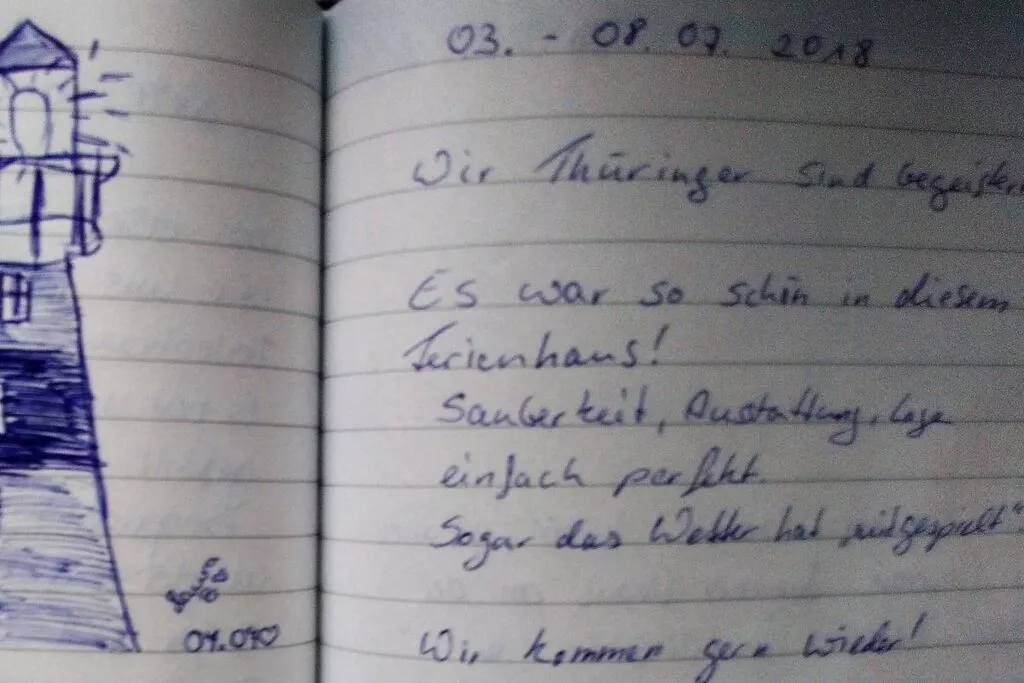 03. - 08. 07. 2018
Wir Thüringer sind begeistert
Es war so schön in diesem
Ferienhaus!
Sauberkeit, Ausstattung, Lage
einfach perfekt.
Sogar das Wetter hat „mitgespielt“.
Wir kommen gern wieder!